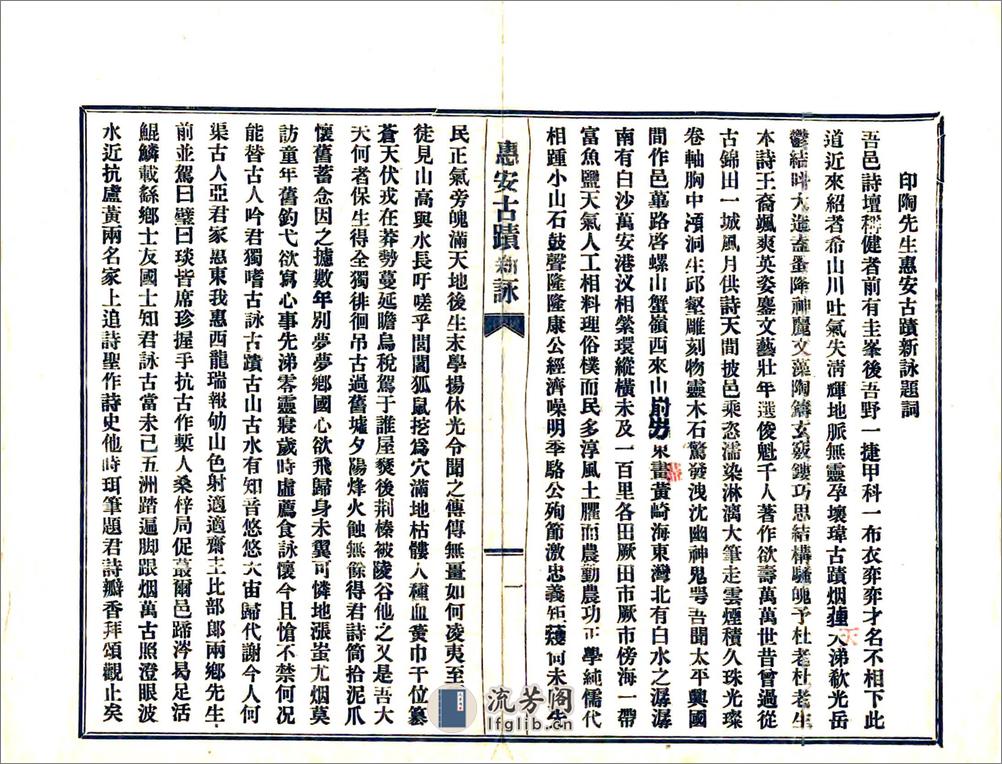 印陶先生惠安古蹟新詠題詞
吾邑詩壇稱健者前有圭峯後吾野一捷甲科一布衣弈弈才名不相上下此
道近來紹者希山川吐氣失清輝地脈無靈孕壞瑋古蹟烟埋天涕欷光岳
鬱結時大造盍蚤降神麗文藻陶鑄玄竅鏤巧思結構騷魄予杜老杜老生
本詩王裔颯爽英姿鏖文藝壯年選俊魁千人著作欲壽萬萬世昔曾過從
古錦田一城風月供詩天間披邑乘恣濡染淋漓大筆走雲煙積久珠光璨
卷軸胸中澒洞生邱壑雕刻物靈木石驚發洩沈幽神鬼愕吾聞太平興國
間作邑蓽路啓螺山蟹嶺西來山東畫黃崎海東灣北有白水之潺潺
南有白沙萬安港汊相縈環縱橫未及一百里各田厥田市厥市傍海一帶
富魚鹽天氣人工相料理俗樸而民多淳風土臞而農勤農功正學純儒代
相踵小山石鼓聲隆隆康公經濟噪明季駱公殉節激忠義矩蒦何未陋先
民正氣旁魄滿天地後生末學揚休光令聞之傳傳無畺如何凌夷至
徒見山高與水長吁嗟乎閭闔狐鼠挖爲穴滿地枯髏人種血黃巾干位纂
蒼天伏戎在莽勢蔓延瞻烏稅駕于誰屋燹後荆榛被陵谷他之又是吾大
天何者保生得全獨徘徊吊古過舊墟夕陽烽火蝕無餘得君詩筒拾泥爪
懷舊蓄念因之攄數年别夢夢鄉國心欲飛歸身未翼可憐地漲蚩尤烟莫
訪童年舊釣弋欲寫心事先涕零靈寢歲時虛薦食詠懷今且愴不禁何况
能替古人吟君獨嗜古詠古蹟古山古水有知音悠悠大宙歸代謝今人何
渠古人亞君家惠東我惠西龍瑞報劬山色射適適齋主比部郎兩鄉先生
前並駕曰璧曰琰皆席珍握手抗古作蹔人桑梓局促蕞爾邑蹄涔曷足活
鯤鱗載繇鄉士友國士知君詠古當未已五洲踏遍脚跟烟萬古照澄眼波
水近抗盧黃兩名家上追詩聖作詩史他時珥筆題君詩瓣香拜頌觀止矣
惠安古蹟新詠
一
流芳阁
lfglib.cn